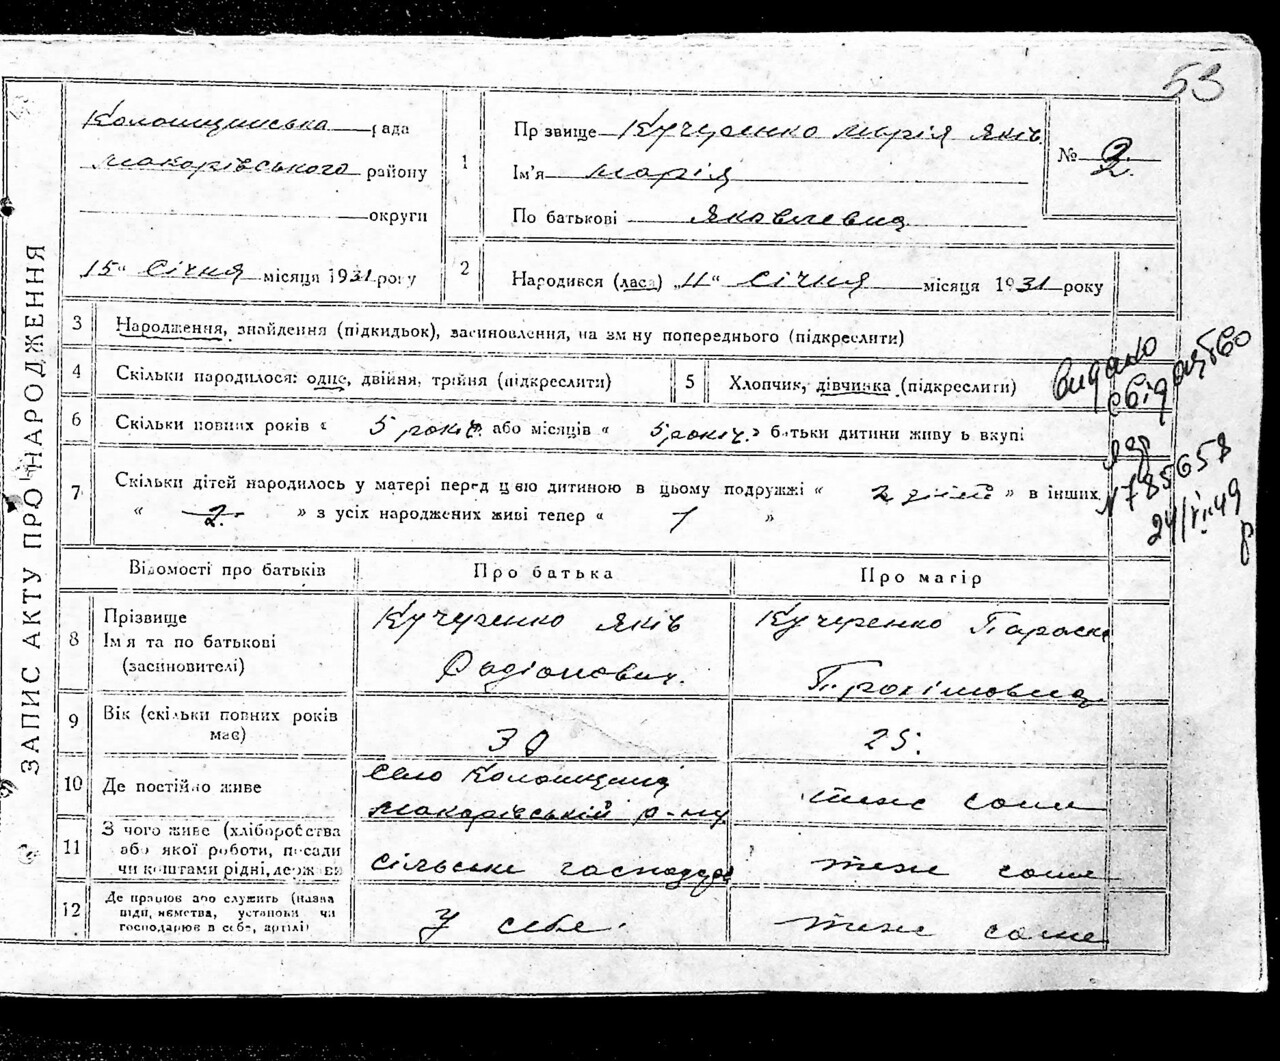 53
ЗАПИС АКТУ ПРО НАРОДЖЕННЯ
Колонщинська рада
Макарівського району
округи
15" Січня місяця 1931 року
1
Прізвище Кучеренко Марія Яків
Ім'я Марія
По батькові Яковлевна
№ 2
2
Народився (лася) „11" Січня місяця 1931 року
3 Народження, знайдення (підкидьок), засиновлення, на зміну попереднього (підкреслити)
4 Скільки народилося: одне, двійня, трійня (підкреслити)
5 Хлопчик, дівчинка (підкреслити)
6 Скільки повних років « 5 років. або місяців « 5 років. » батьки дитини живуть вкупі
7 Скільки дітей народилось у матері перед цією дитиною в цьому подружжі « 2 дітей » в інших
« 2. » з усіх народжених живі тепер « 1 »
видано
свідоцтво
№ 785658
24/VI-49
р
Відомості про батьків
Про батька
Про матір
8 Прізвище
Ім'я та по батькові
(засиновителі)
Кучеренко Яків
Радіонович.
Кучеренко Параск
Трохимовна
9 Вік (скільки повних років
має)
30
25.
10 Де постійно живе
село Колонщина
Макарівській р-ну
теж саме
11 З чого живе (хліборобства
або якої роботи, посади
чи коштами рідні, держави
сільське господар
теж саме
12 Де працює або служить (назва
підприємства, установи чи
господарює в себе, артілі)
У себе.
теж саме